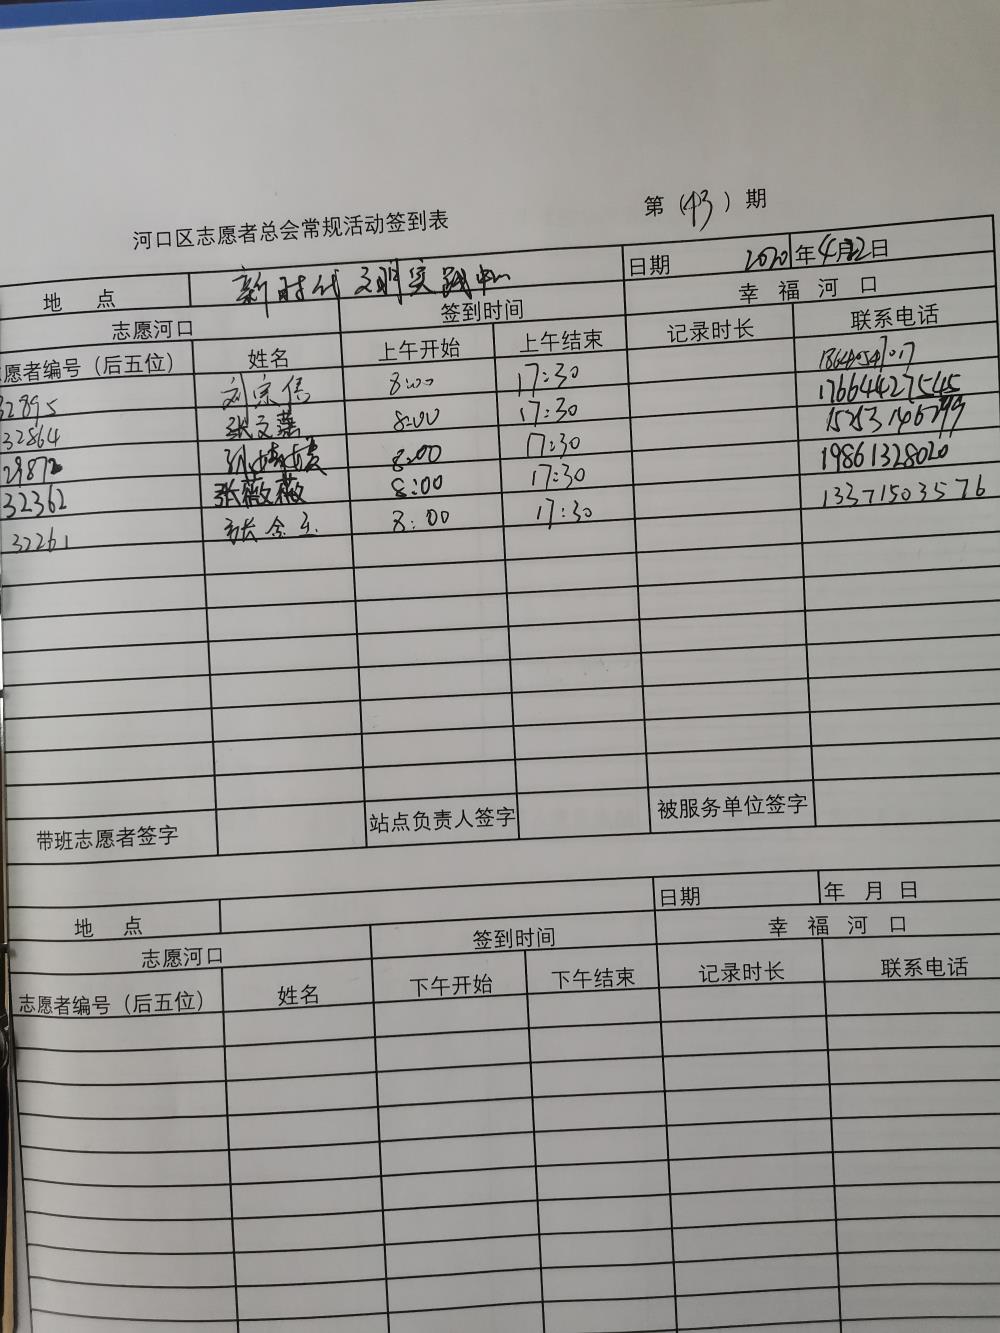 河口区志愿者总会常规活动签到表 第（43）期
地 点 新时代文明实践中心 日期 2020年4月22日
志愿河口 签到时间 幸 福 河 口
愿者编号（后五位） 姓名 上午开始 上午结束 记录时长 联系电话
32895 刘宗信 8:00 17:30
32864 8:00 17:30 17664427545
29872 8:00 17:30 15253146799
32362 张薇薇 8:00 17:30 19861328020
32261 8:00 17:30 13371503576
带班志愿者签字 站点负责人签字 被服务单位签字
地 点 日期 年 月 日
志愿河口 签到时间 幸 福 河 口
志愿者编号（后五位） 姓名 下午开始 下午结束 记录时长 联系电话